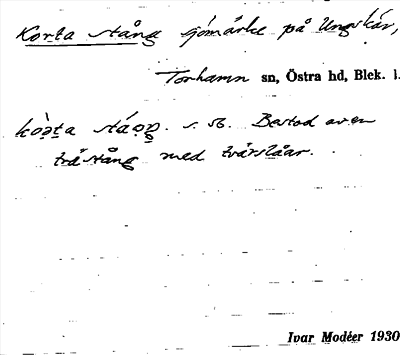 Korta stång sjömärke på Ungskär,
Torhamn sn, Östra hd, Blek. l.
s. 56. Bestod av en
trästång med tvärslåar.
Ivar Modéer 1930